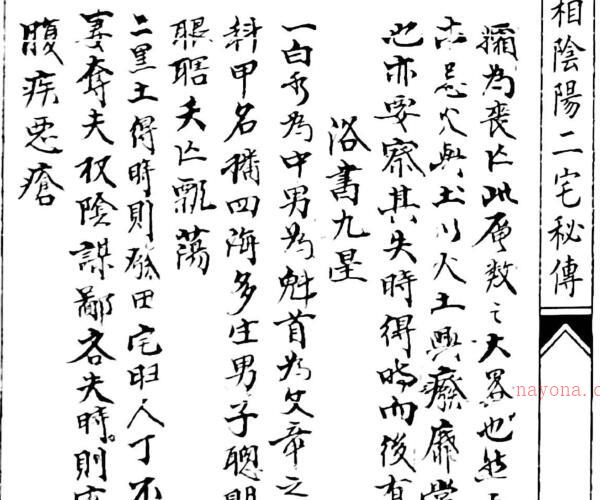 相陰陽二宅秘傳
損為喪亡此層数之大畧也然
忌火與土以火土興癈靡常
也亦要察其失時得時而後有
洛書九星
一白水為中男為魁首為文章之
科甲名播四海多生男子聰明
眼瞎夭亡飄蕩
二黑土得時則發田宅旺人丁不
妻奪夫权陰謀鄙吝失時則
腹疾惡瘡
nayona.c